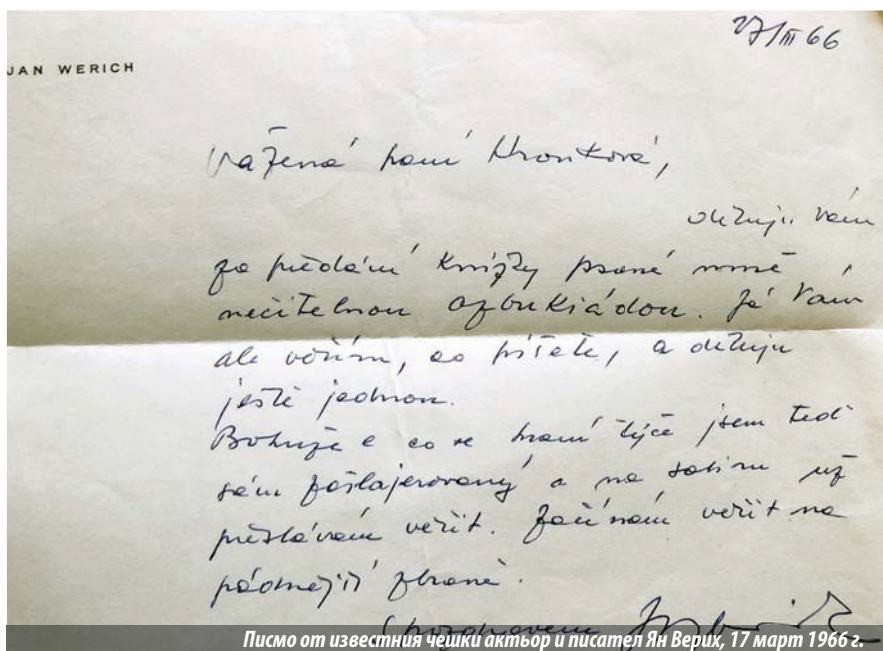 27/III 66
JAN WERICH
Vážená paní Hronková,
děkuji vám
za předání knížky psané mně
nečitelnou azbukiádou. Já Vám
ale věřím, co píšete, a děkuju
ještě jednou.
Bohužel co se hraní týče jsem teď
sám zašlajerovaný a na satiru už
přestávám věřit. Začínám věřit na
pádnější zbraně.
S pozdravem
Писмо от известния чешки актьор и писател Ян Верих, 17 март 1966 г.